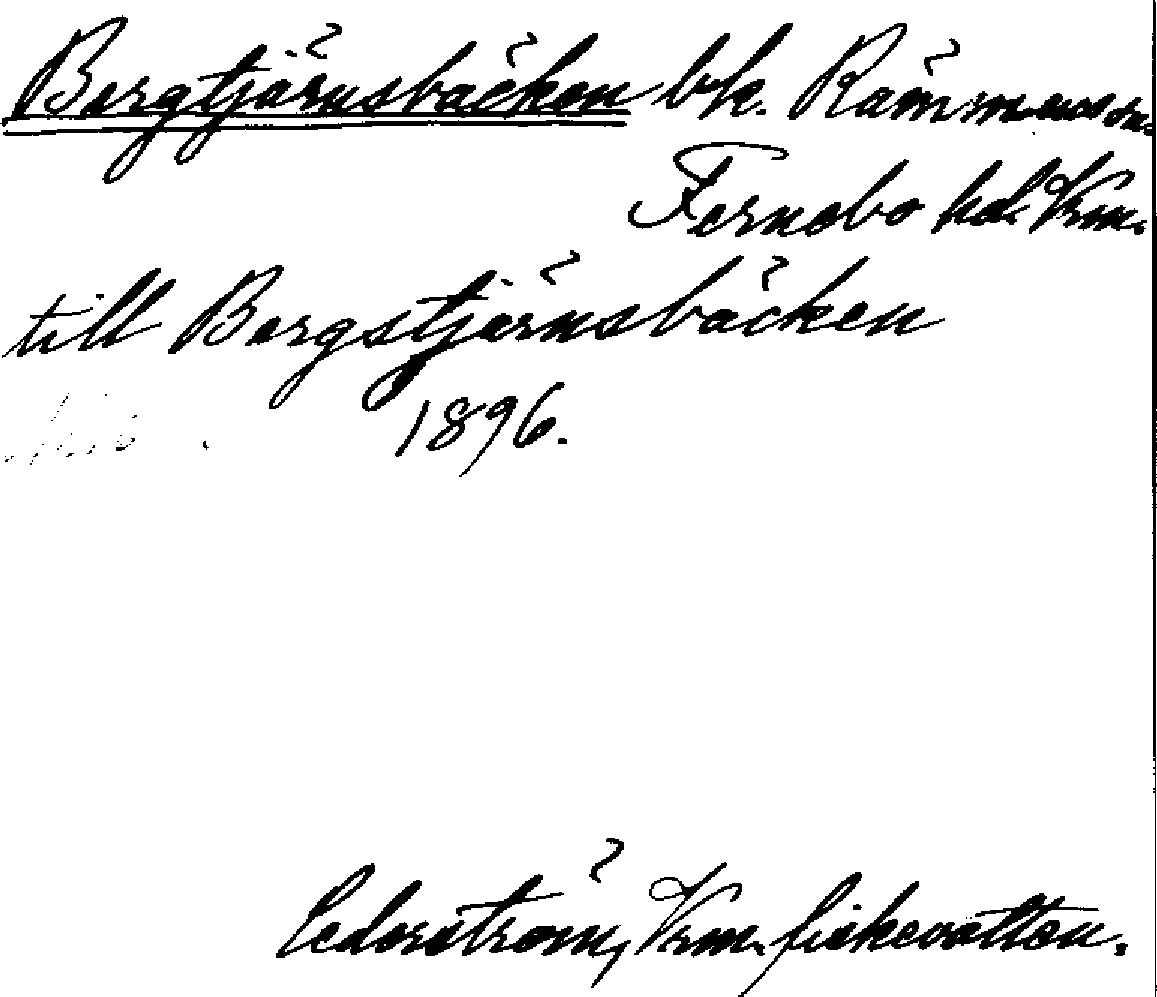 Bergtjärnsbäcken bk. Rämmens sn.
Fernebo hd. Vrm.
till Bergstjärnsbäcken
1896.
Cederström, Vrm. fiskevatten.